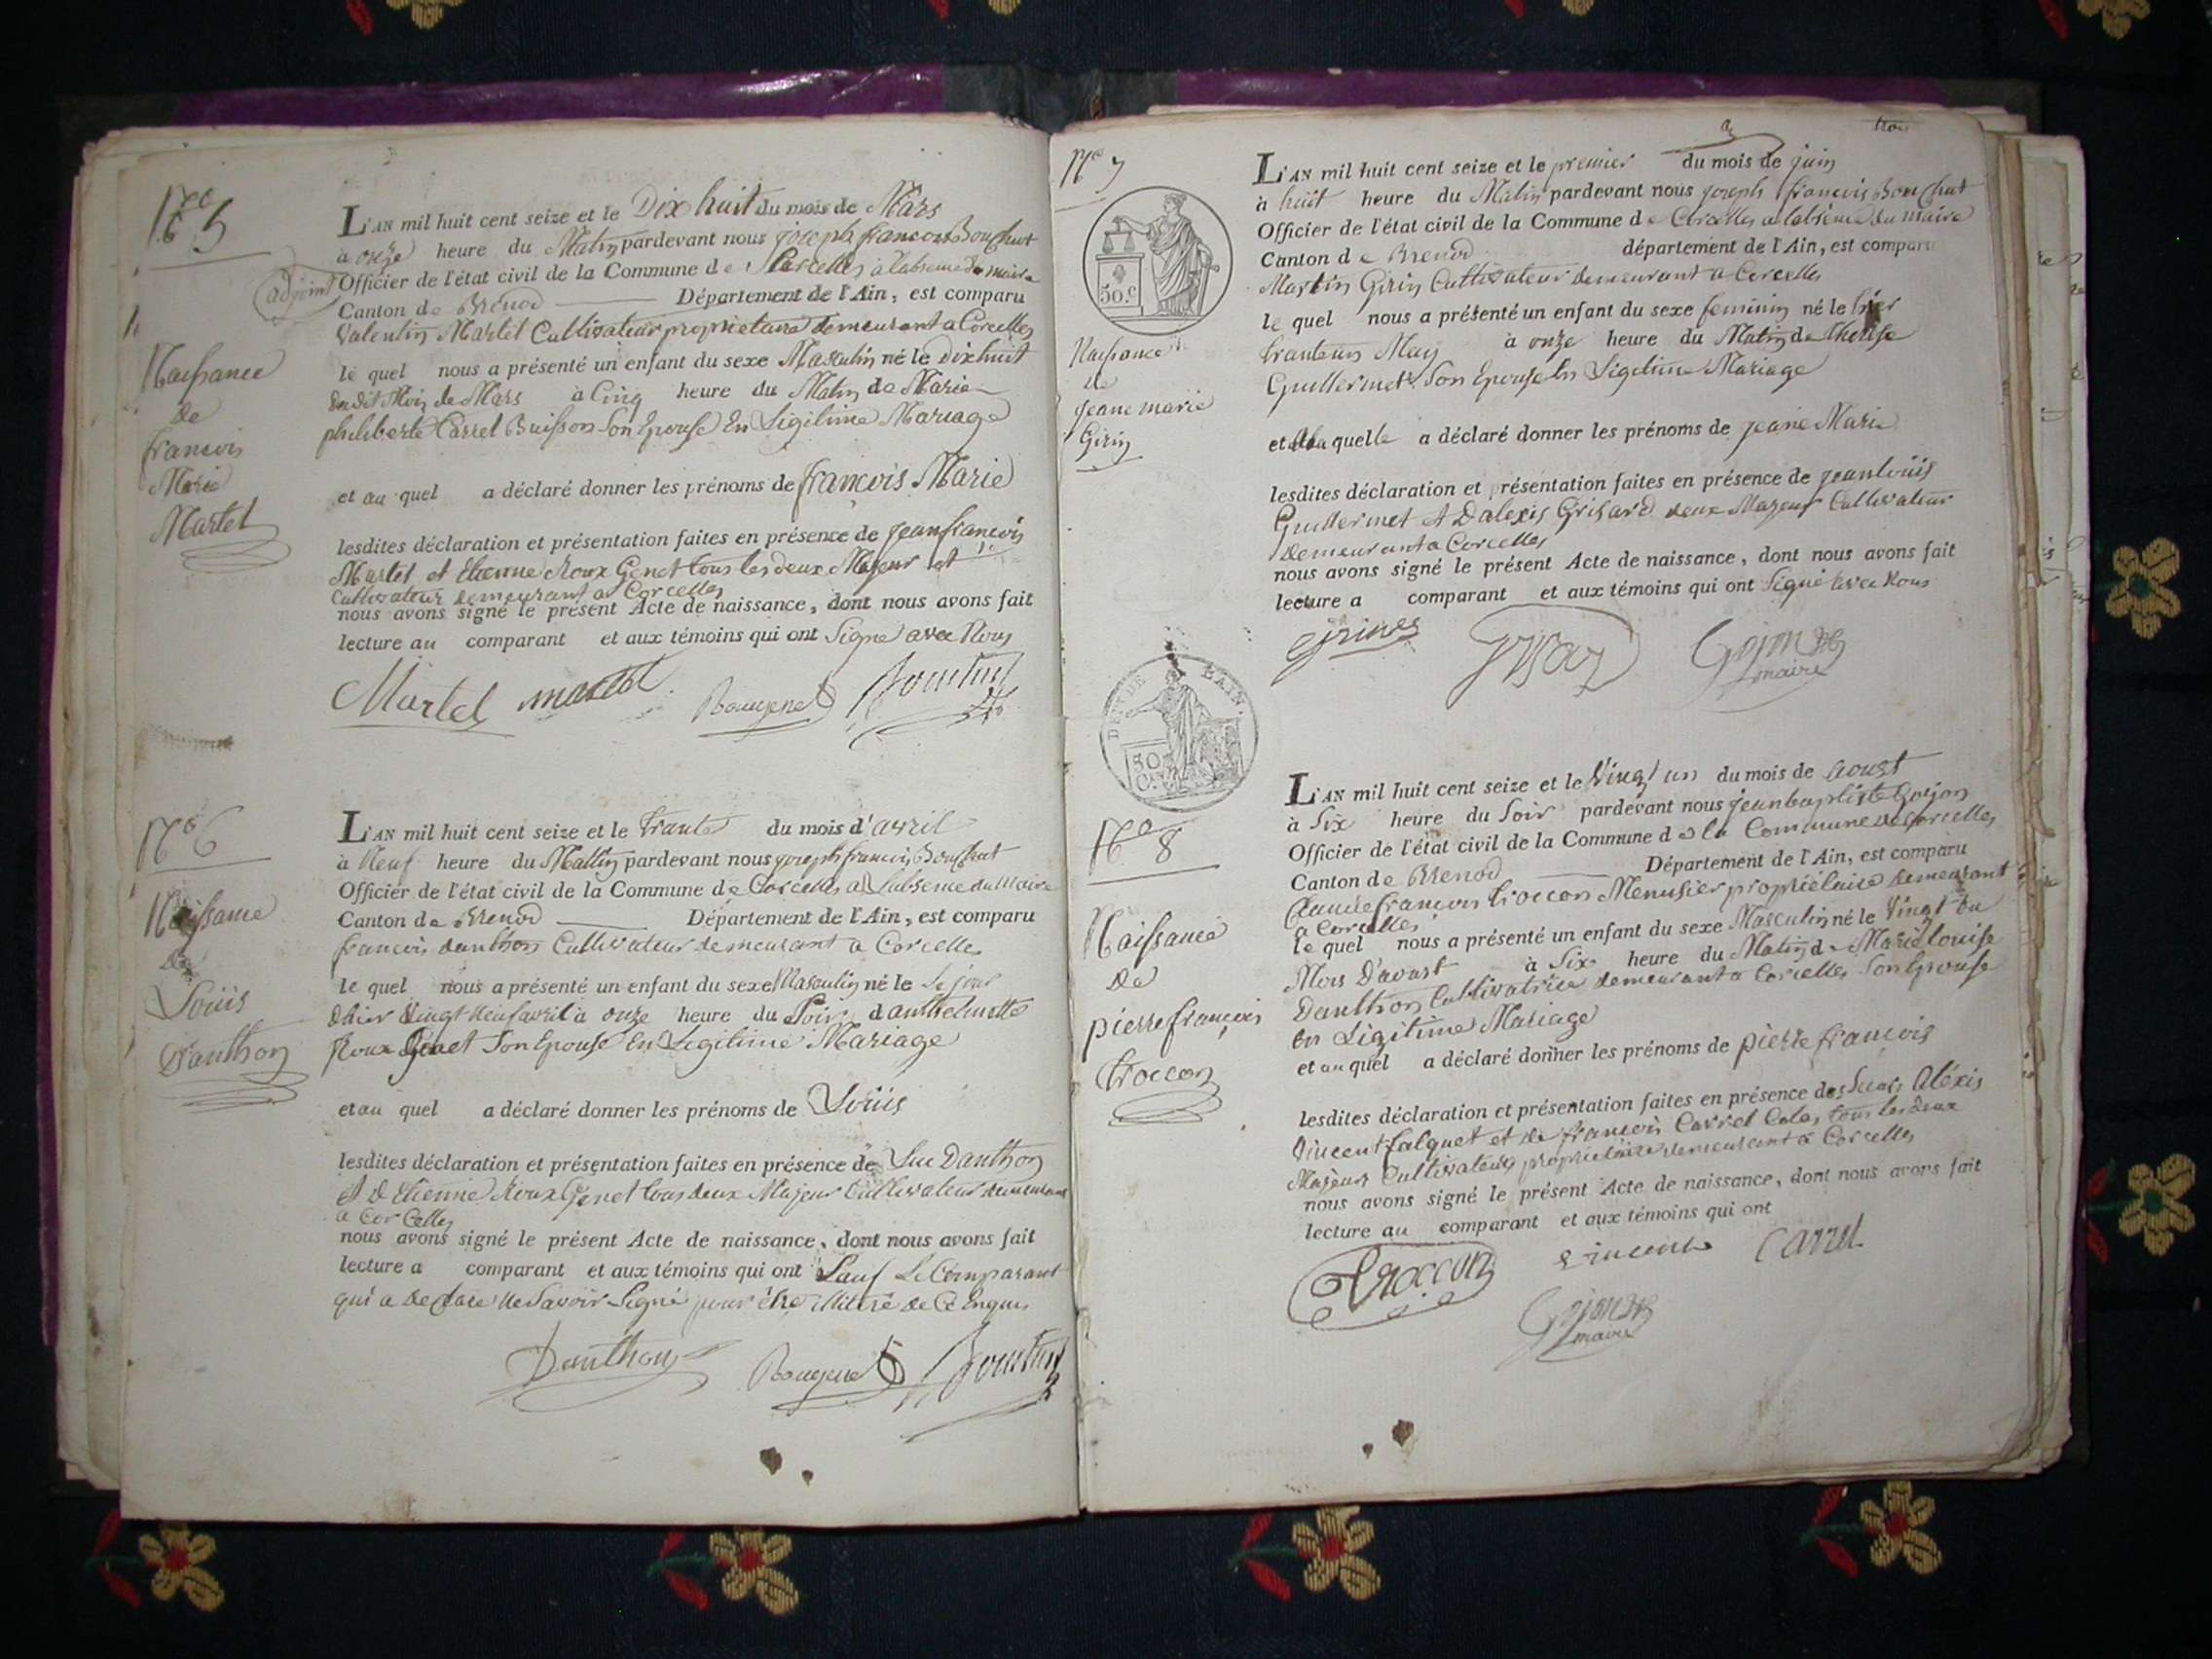 N.º 5
adjoint
Naissance
de
francois
Marie
Martel
L'AN mil huit cent seize et le Dix huit du mois de Mars
à onze heure du Matin pardevant nous joseph francois Bouchut
Officier de l'état civil de la Commune de Corcelles a labsence du maire
Canton de Brenod Département de l'Ain, est comparu
Valentin Martel Cultivateur proprietaire demeurant a Corcelles
le quel nous a présenté un enfant du sexe Masculin né le Dix huit
dudit Mois de Mars à Cinq heure du Matin de Marie
philiberte Carrel Buisson Son Epouse En Ligitime Mariage
et au quel a déclaré donner les prénoms de francois Marie
lesdites déclaration et présentation faites en présence de jean francois
Martel et Etienne Roux Genet tous les deux Majeur et
Cultivateur demeurant a Corcelles
nous avons signé le présent Acte de naissance, dont nous avons fait
lecture au comparant et aux témoins qui ont Signé avec Nous
Martel martel Rouxgenet
N.º 6
Naissance
de
Loüis
Danthon
L'AN mil huit cent seize et le trante du mois d'avril
à Neuf heure du Mattin pardevant nous joseph francois Bouchut
Officier de l'état civil de la Commune de Corcelles a Labsence du Maire
Canton de Brenod Département de l'Ain, est comparu
francois danthon Cultivateur demeurant a Corcelles
le quel nous a présenté un enfant du sexe Masculin né le Le jour
dhier Vingt Neuf avril à onze heure du Soir danthelmette
Roux Genet Son Epouse En Legitime Mariage
et au quel a déclaré donner les prénoms de Loüis
lesdites déclaration et présentation faites en présence de Luc Danthon
et D Etienne Roux Genet tous deux Majeur Cultivateur demeurant
a Corcelles
nous avons signé le présent Acte de naissance, dont nous avons fait
lecture a comparant et aux témoins qui ont Sauf Le Comparant
qui a declaré ne Savoir Signé pour être illitéré de Ce Enquis
Danthon Rouxgenet
3 trois
N.º 7
50.c
Naissance
de
jeane marie
Girin
L'AN mil huit cent seize et le premier du mois de juin
à huit heure du Matin pardevant nous joseph francois Bouchut
Officier de l'état civil de la Commune de Corcelles a labsence du maire
Canton de Brenod département de l'Ain, est comparu
Martin Girin Cultivateur demeurant a Corcelles
le quel nous a présenté un enfant du sexe feminin né le hier
tranteun May à onze heure du Matin de Therese
Guillermet Son Epouse En Ligitime Mariage
et a la quelle a déclaré donner les prénoms de jeane Marie
lesdites déclaration et présentation faites en présence de jean loüis
Guillermet et Dalexis Grisard deux Majeur Cultivateur
demeurant a Corcelles
nous avons signé le présent Acte de naissance, dont nous avons fait
lecture a comparant et aux témoins qui ont Signé avec Nous
Gojon
maire
DE L'AIN.
50
N.º 8
Naissance
de
pierre francois
troccon
L'AN mil huit cent seize et le Vingt un du mois de aoust
à Six heure du Soir pardevant nous jean baptiste Gojon
Officier de l'état civil de la Commune de la Commune de Corcelles
Canton de Brenod Département de l'Ain, est comparu
Claude francois troccon Menusier propriétaire demeurant
a Corcelles
le quel nous a présenté un enfant du sexe Masculin né le Vingt du
Mois D'avust à Six heure du Matin de Marie louise
Danthon Cultivatrice demeurant a Corcelles Son Epouse
en Ligitime Mariage
et au quel a déclaré donner les prénoms de pierre francois
lesdites déclaration et présentation faites en présence des Sieurs Aléxis
Vincent falquet et de francois Carrel Colas tous les deux
Majeur Cultivateur propriétaire demeurant a Corcelles
nous avons signé le présent Acte de naissance, dont nous avons fait
lecture au comparant et aux témoins qui ont
Troccon vincent Carrel
Gojon
maire